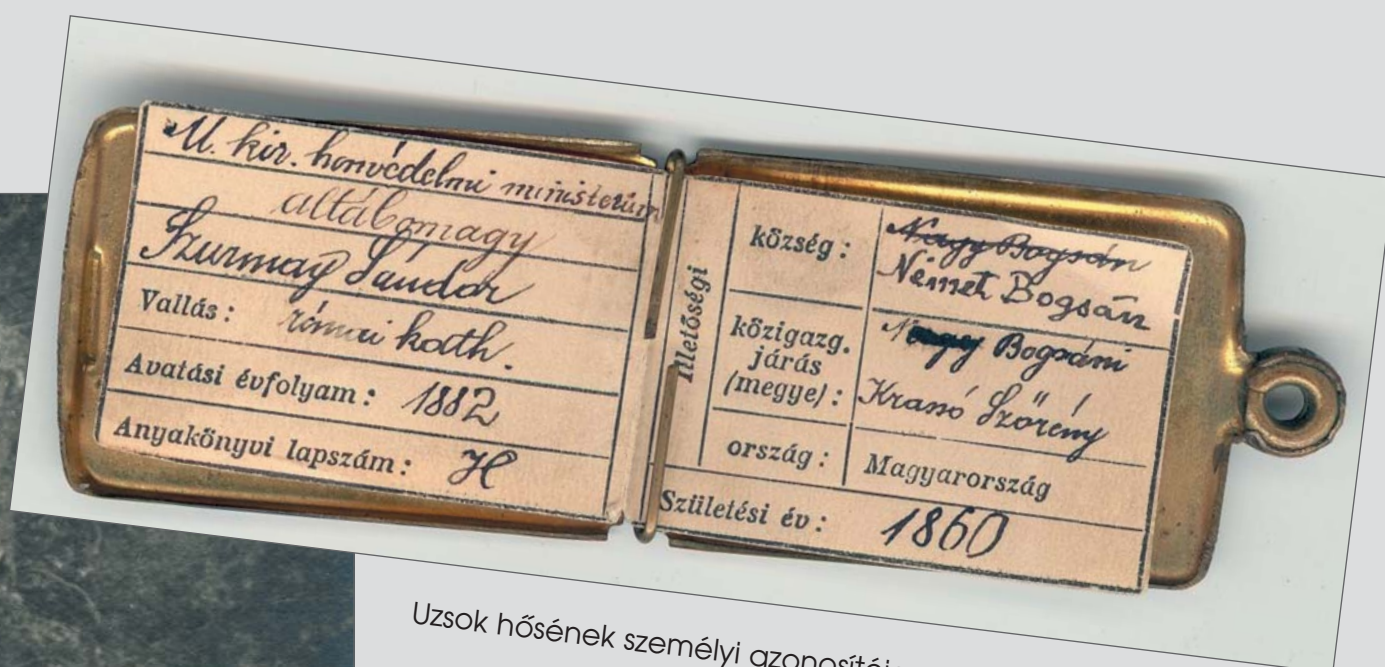 M. kir. honvédelmi ministerium
altábornagy
Szurmay Sándor
Vallás: római kath.
Avatási évfolyam: 1882
Anyakönyvi lapszám: H
Illetőségi
község: Nagy Bogsán
Német Bogsán
közigazg. járás (megye): Nagy Bogsáni
Krassó Szörény
ország: Magyarország
Születési év: 1860
Uzsok hősének személyi